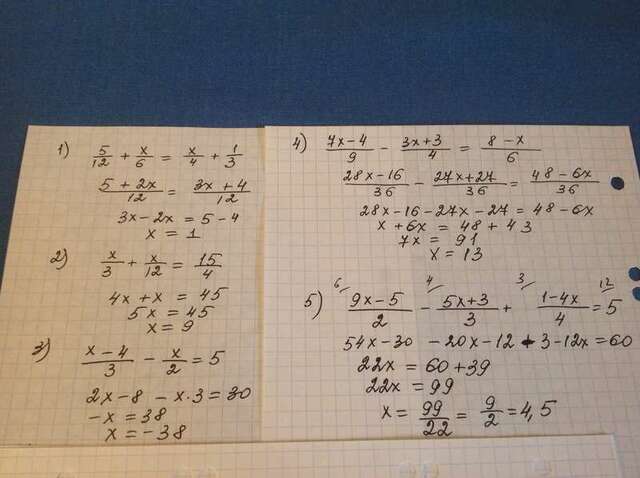 1) 5/12 + x/6 = x/4 + 1/3
(5 + 2x)/12 = (3x + 4)/12
3x - 2x = 5 - 4
x = 1
2) x/3 + x/12 = 15/4
4x + x = 45
5x = 45
x = 9
3) (x - 4)/3 - x/2 = 5
2x - 8 - x·3 = 30
-x = 38
x = -38
4) (7x - 4)/9 - (3x + 3)/4 = (8 - x)/6
(28x - 16)/36 - (27x + 27)/36 = (48 - 6x)/36
28x - 16 - 27x - 27 = 48 - 6x
x + 6x = 48 + 43
7x = 91
x = 13
6/ 4/ 3/ 12/
5) (9x - 5)/2 - (5x + 3)/3 + (1 - 4x)/4 = 5
54x - 30 - 20x - 12 + 3 - 12x = 60
22x = 60 + 39
22x = 99
x = 99/22 = 9/2 = 4,5